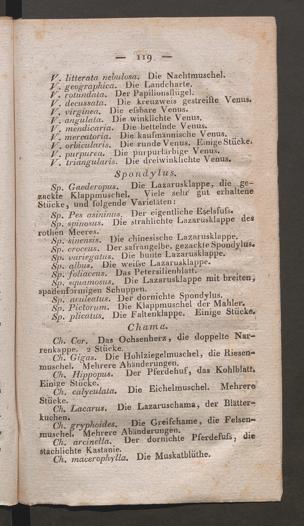 — 119 —
V. litterata nebulosa. Die Nachtmuschel.
V. geographica. Die Landcharte.
V. rotundata. Der Papilionsflügel.
V. decussata. Die kreuzweis gestreifte Venus.
V. virginea. Die eſsbare Venus.
V. angulata. Die winklichte Venus.
V. mendicaria. Die bettelnde Venus.
V. mercatoria. Die kaufmännische Venus.
V. orbicularis. Die runde Venus. Einige Stücke.
V. purpurea. Die purpurfarbige Venus.
V. triangularis. Die dreiwinklichte Venus.
Spondylus.
Sp. Gaederopus. Die Lazarusklappe, die ge-
zackte Klappmuschel. Viele sehr gut erhaltene
Stücke, und folgende Varietäten:
Sp. Pes asininus. Der eigentliche Eselsfuſs.
Sp. spinosus. Die strahlichte Lazarusklappe des
rothen Meeres.
Sp. sinensis. Die chinesische Lazarusklappe.
Sp. croceus. Der safrangelbe, gezackte Spondylus.
Sp. variegatus. Die bunte Lazarusklappe.
Sp. albus. Die weiſse Lazarusklappe.
Sp. foliaceus. Das Petersilienblatt.
Sp. squamosus. Die Lazarusklappe mit breiten,
spadenförmigen Schuppen.
Sp. aculeatus. Der dornichte Spondylus.
Sp. Pictorum. Die Klappmuschel der Mahler.
Sp. plicatus. Die Faltenklappe. Einige Stücke.
Chama.
Ch. Cor. Das Ochsenherz, die doppelte Nar-
renkappe. 2 Stücke.
Ch. Gigas. Die Hohlziegelmuschel, die Riesen-
muschel. Mehrere Abänderungen.
Ch. Hippopus. Der Pferdehuf, das Kohlblatt.
Einige Stücke.
Ch. calyculata. Die Eichelmuschel. Mehrere
Stücke.
Ch. Lazarus. Die Lazaruschama, der Blätter-
kuchen.
Ch. gryphoides. Die Greifchame, die Felsen-
muschel. Mehrere Abänderungen.
Ch. arcinella. Der dornichte Pferdefuſs, die
stachlichte Kastanie.
Ch. macerophylla. Die Muskatblüthe.